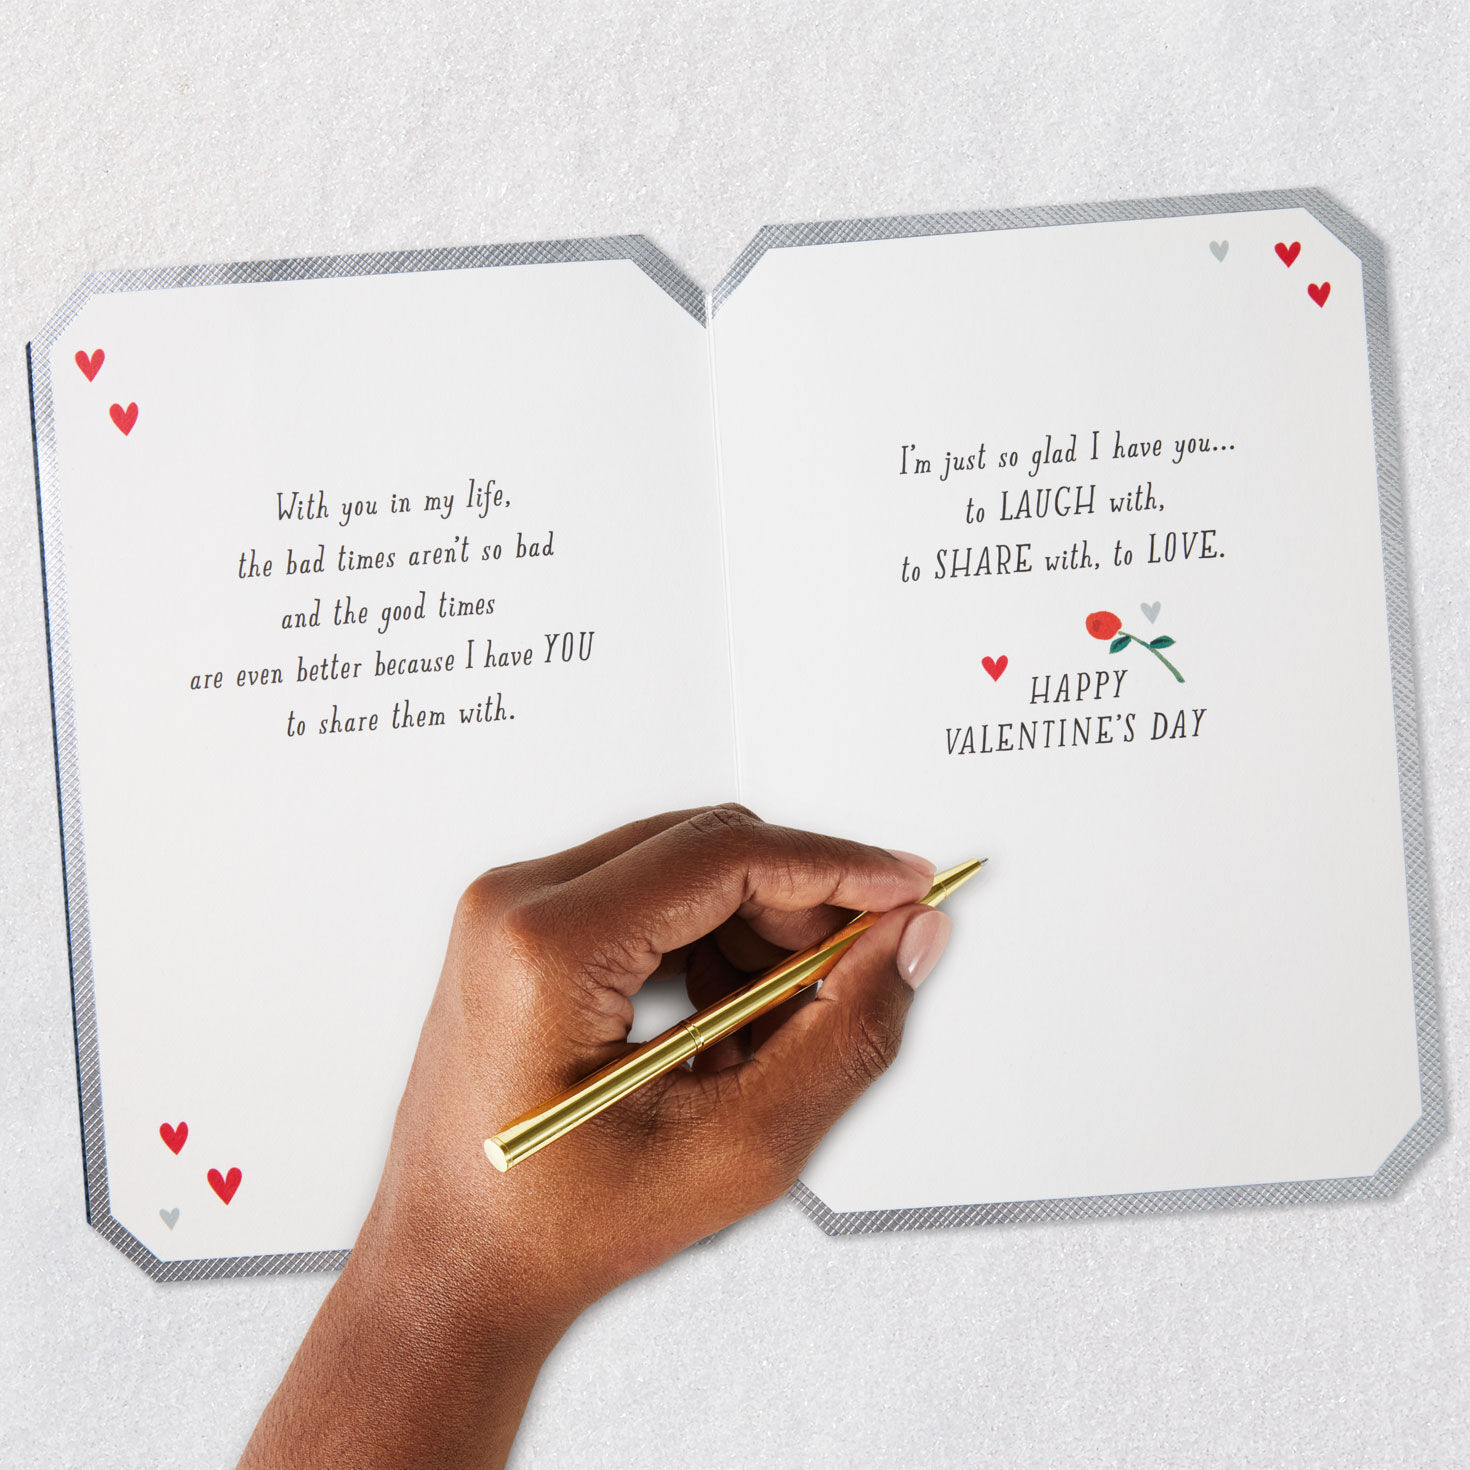 With you in my life,
the bad times aren't so bad
and the good times
are even better because I have YOU
to share them with.
I'm just so glad I have you...
to LAUGH with,
to SHARE with, to LOVE.
HAPPY
VALENTINE'S DAY